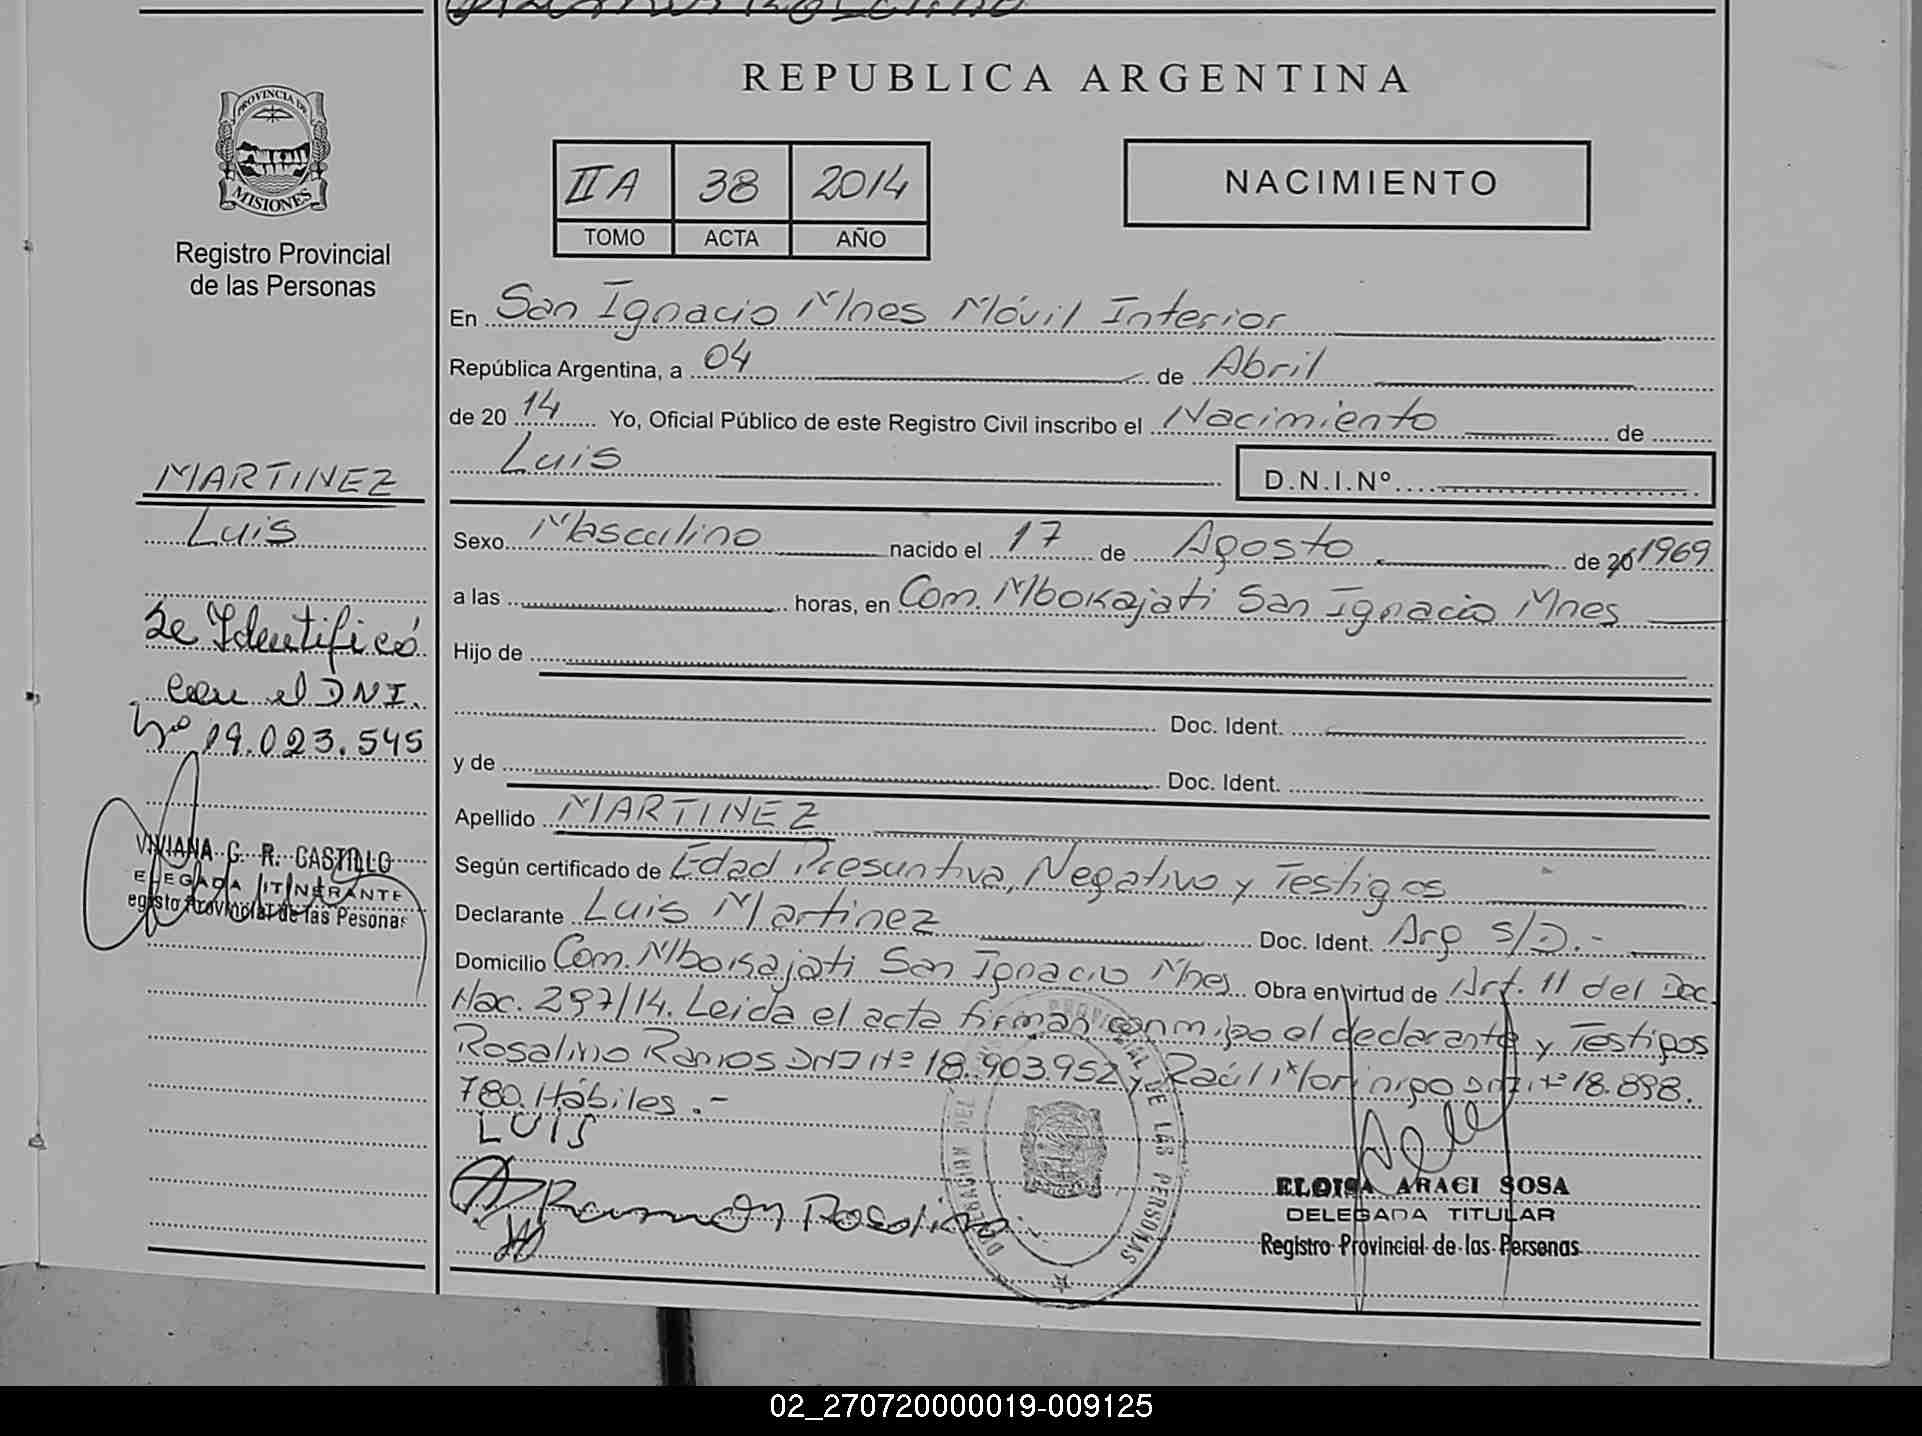 REPUBLICA ARGENTINA
PROVINCIA DE
MISIONES
Registro Provincial
de las Personas
IIA 38 2014
TOMO ACTA AÑO
NACIMIENTO
En San Ignacio Mnes Móvil Interior
República Argentina, a 04 de Abril
de 20 14 Yo, Oficial Público de este Registro Civil inscribo el Nacimiento de
Luis D.N.I.Nº
MARTINEZ
Luis
Se Identificó
con el DNI.
Nº 19.023.545
VIVIANA G. R. CASTILLO
ELEGADA ITINERANTE
egisto Provincial de las Pesonas
Sexo Masculino nacido el 17 de Agosto de 20 1969
a las horas, en Com. Mbokajati San Ignacio Mnes
Hijo de
Doc. Ident.
y de Doc. Ident.
Apellido MARTINEZ
Según certificado de Edad Presuntiva, Negativo y Testigos
Declarante Luis Martinez Doc. Ident. Arg S/D.-
Domicilio Com. Mbokajati San Ignacio Mnes Obra en virtud de Art. 11 del Dec.
Nac. 297/14. Leida el acta firman conmigo el declarante y Testigos
Rosalino Ramos DNI Nº 18.903.952 y Raúl Moringo DNI Nº 18.898.
780. Hábiles.-
LUIS
Ramon Rosalino
PROVINCIAL DE LAS PERSONAS
ELOISA ARACI SOSA
DELEGADA TITULAR
Registro Provincial de las Personas
02_270720000019-009125